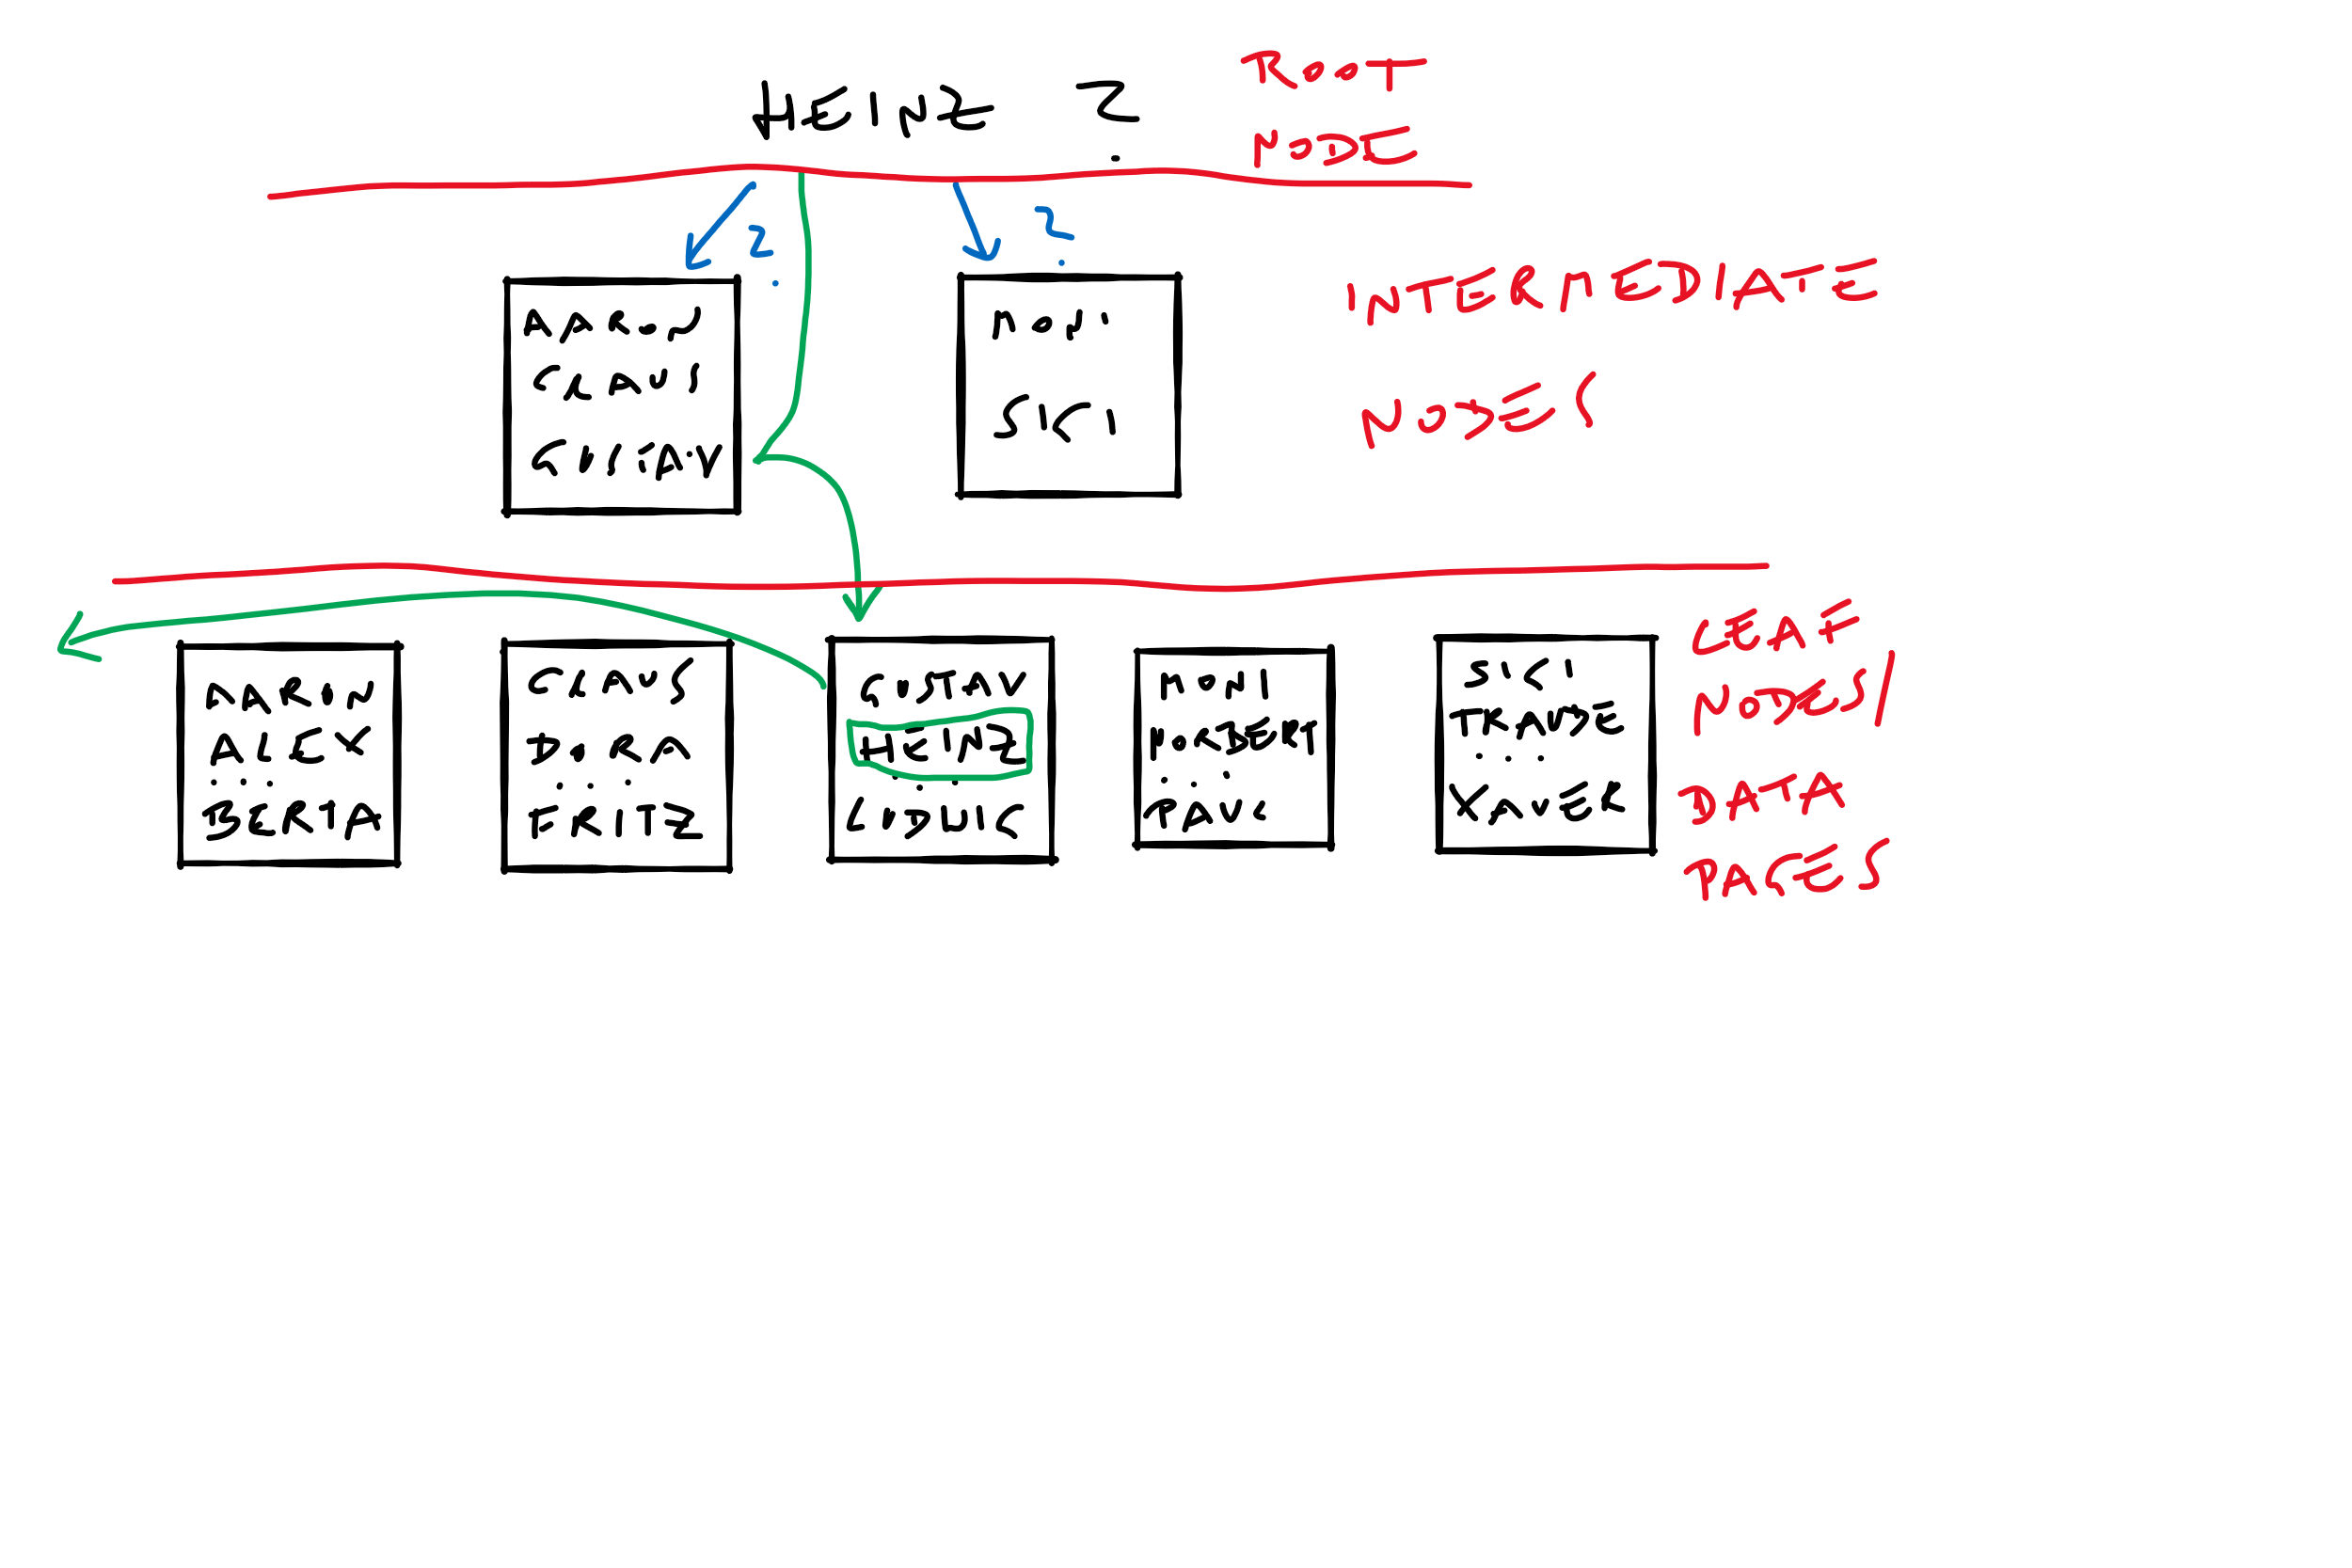 HEINZ ?
ROOT
NODE
?
?
AARON
CLAUS
GUSTAV
NONI
SIGI
INTERMEDIATE
NODES
AARON
ALEX
...
BERTA
CLAUS
DORA
...
FRITZ
GUSTAV
HEINZ
...
LUDWIG
NONI
NORBERT
...
PAUL
SIGI
TRAUDE
...
XAVER
LEAF
NODES/
DATA
PAGES